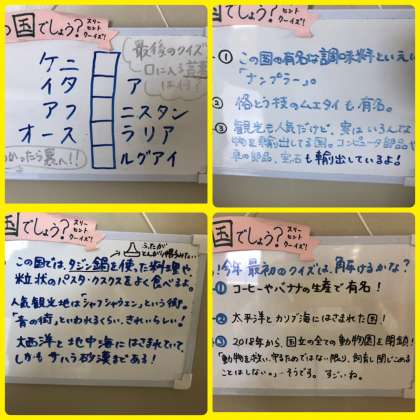 国でしょう？
スリー
ヒント
クーイズ！
最後のクイズ
口に入る言葉
は何！
ケニ
イタ ア
アフ ニスタン
オース ラリア
ルグアイ
わかったら裏へ！！
国でしょう？
スリー
ヒント
クーイズ！
① この国の有名な調味料といえば
「ナンプラー」。
② 格とう技のムエタイも有名。
③ 観光も人気だけど、実はいろんな
物を輸出してる国。コンピュータ部品や
車の部品、宝石も輸出しているよ！
国でしょう？
スリー
ヒント
クーイズ！
ふたが
とんがり帽子みたい
この国では、タジン鍋を使った料理や
粒状のパスタ・クスクスをよく食べるよ。
人気観光地はシャフシャウエンという街。
「青の街」といわれるくらい、きれいらしい！
大西洋と地中海にはさまれていて
しかもサハラ砂漠まである！
国でしょう？
スリー
ヒント
クーイズ！
！今年最初のクイズは、解けるかな？
① コーヒーやバナナの生産で有名！
② 太平洋とカリブ海にはさまれた国！
③ 2018年から、国立の全ての動物園を閉鎖！
「動物を救い、守るためではない限り、飼育し閉じこめる
ことはしない。」…そうです。すごいね。